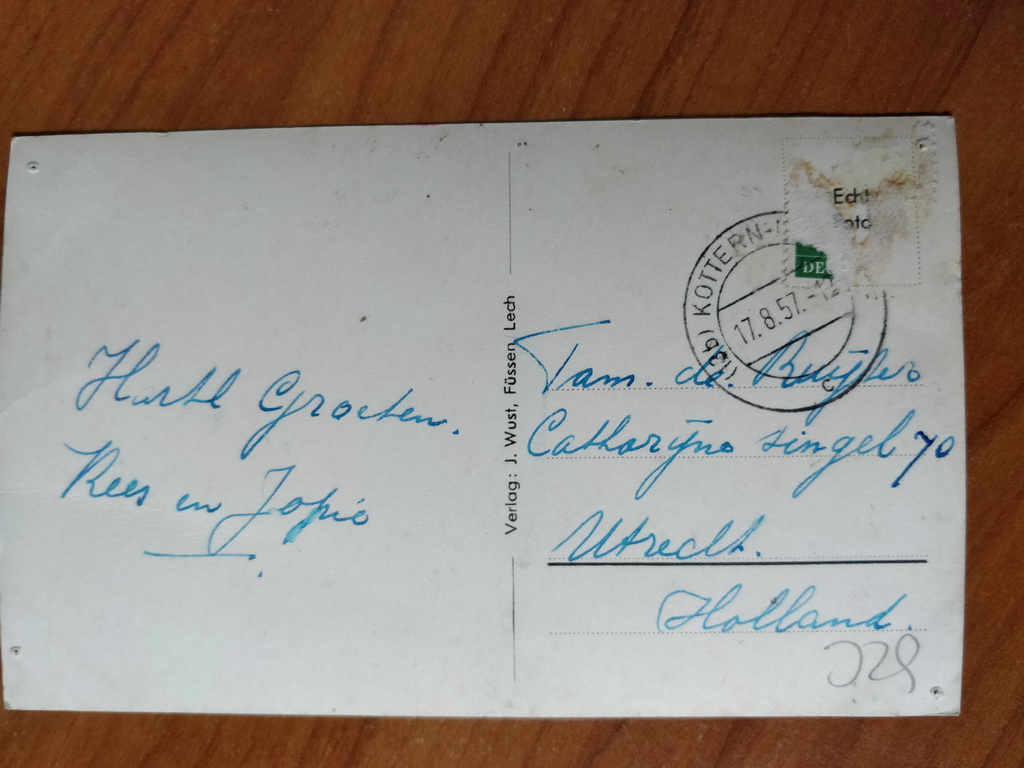 Hartl Groeten.
Kees en Jopie
Verlag: J. Wust, Füssen, Lech
Echt
Foto
DE
(13b) KOTTERN-
17.8.57.-12
c
Fam. de. Ruijter
Catharijne singel 70
Utrecht.
Holland.